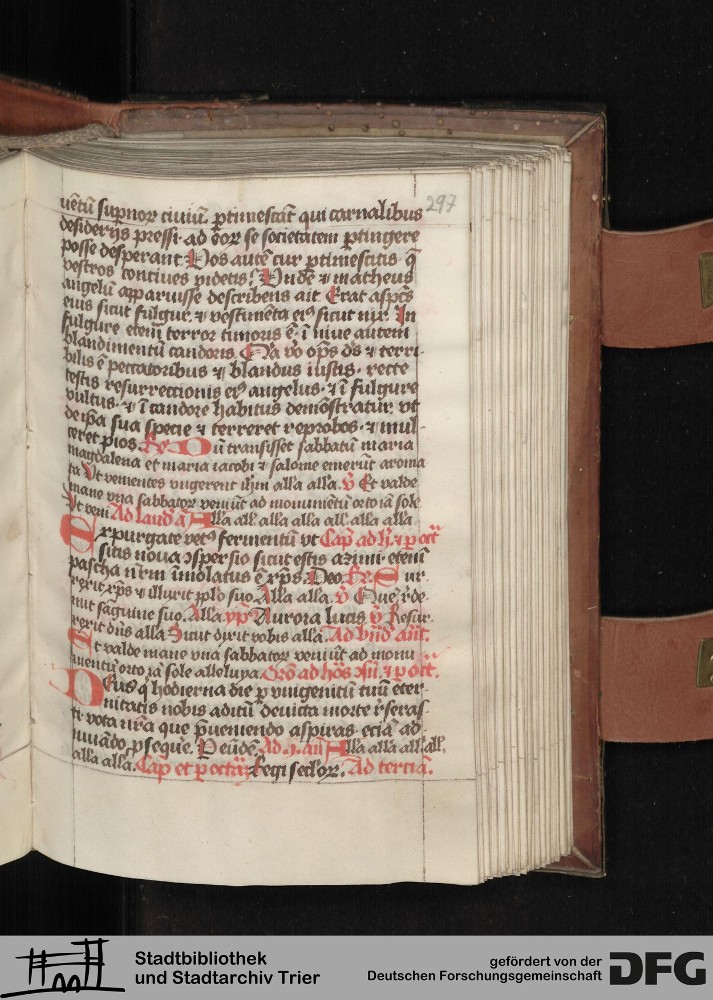 297
uētū supnoꝝ ciuiū. ꝑtimescāt qui carnalibus
desiderijs pressi· ad eoꝝ se societatem ꝑtingere
posse desperant Vos autē cur ꝑtimescitis q̄
vestros conciues videtis. Vnde ⁊ matheus
angelū apparuisse describens ait Erat aspcs
eius sicut fulgur. ⁊ vestimēta eiꝰ sicut nix. In
fulgure eteni terror timoris ē. ī niue autem
blandimentū candoris. Qa vo opͫs ds ⁊ terri-
bilis ē peccatoribus ⁊ blandus iustis. recte
testis resurrectionis eiꝰ angelus· ⁊ ī fulgure
vultus· ⁊ ī candore habitus demōstratur. vt
de ip̄a sua specie ⁊ terreret reprobos· ⁊ mul-
ceret pios. Rx Dū transisset sabbatū maria
magdalena et maria iacobi ⁊ salome emerūt aroma
ta Vt venientes vngerent ihm alla alla. V Et valde
mane vna sabbatoꝝ veniūt ad monumētū orto iā sole
Vt veni Ad laud añ Alla all' alla alla all' alla alla
Expurgate vetꝰ fermentū vt Cap ad h. ⁊ ꝑ oct
sitis noua ɔspersio sicut estis azimi· etenī
pascha nrm īmolatus ē xp̄s. Deo. Rx Sur-
rexit xp̄s ⁊ illuxit pplo suo. Alla alla. V Quē rde-
mit saguine suo. Alla. yp Aurora lucis V Resur-
rexit dns alla Sicut dixit vobis alla. Ad bn̄d añt.
Et valde mane vna sabbatoꝝ veniūt ad monu
mentū orto iā sole alleluya. Orō ad hos ⁊ ꝑ oct.
Deus q̄ hodierna die ꝑ vnigenitū tuū eter-
nitatis nobis aditū deuicta morte rseras-
ti· vota nra que ꝓueniendo aspiras· eciā ad
iuuādo ꝓseque. Ꝑ eūdē Ad .j. añ Alla alla all' all'.
alla alla. Cap et ꝑ octā Regi secloꝝ. Ad terciā.
Stadtbibliothek
und Stadtarchiv Trier
gefördert von der
Deutschen Forschungsgemeinschaft
DFG